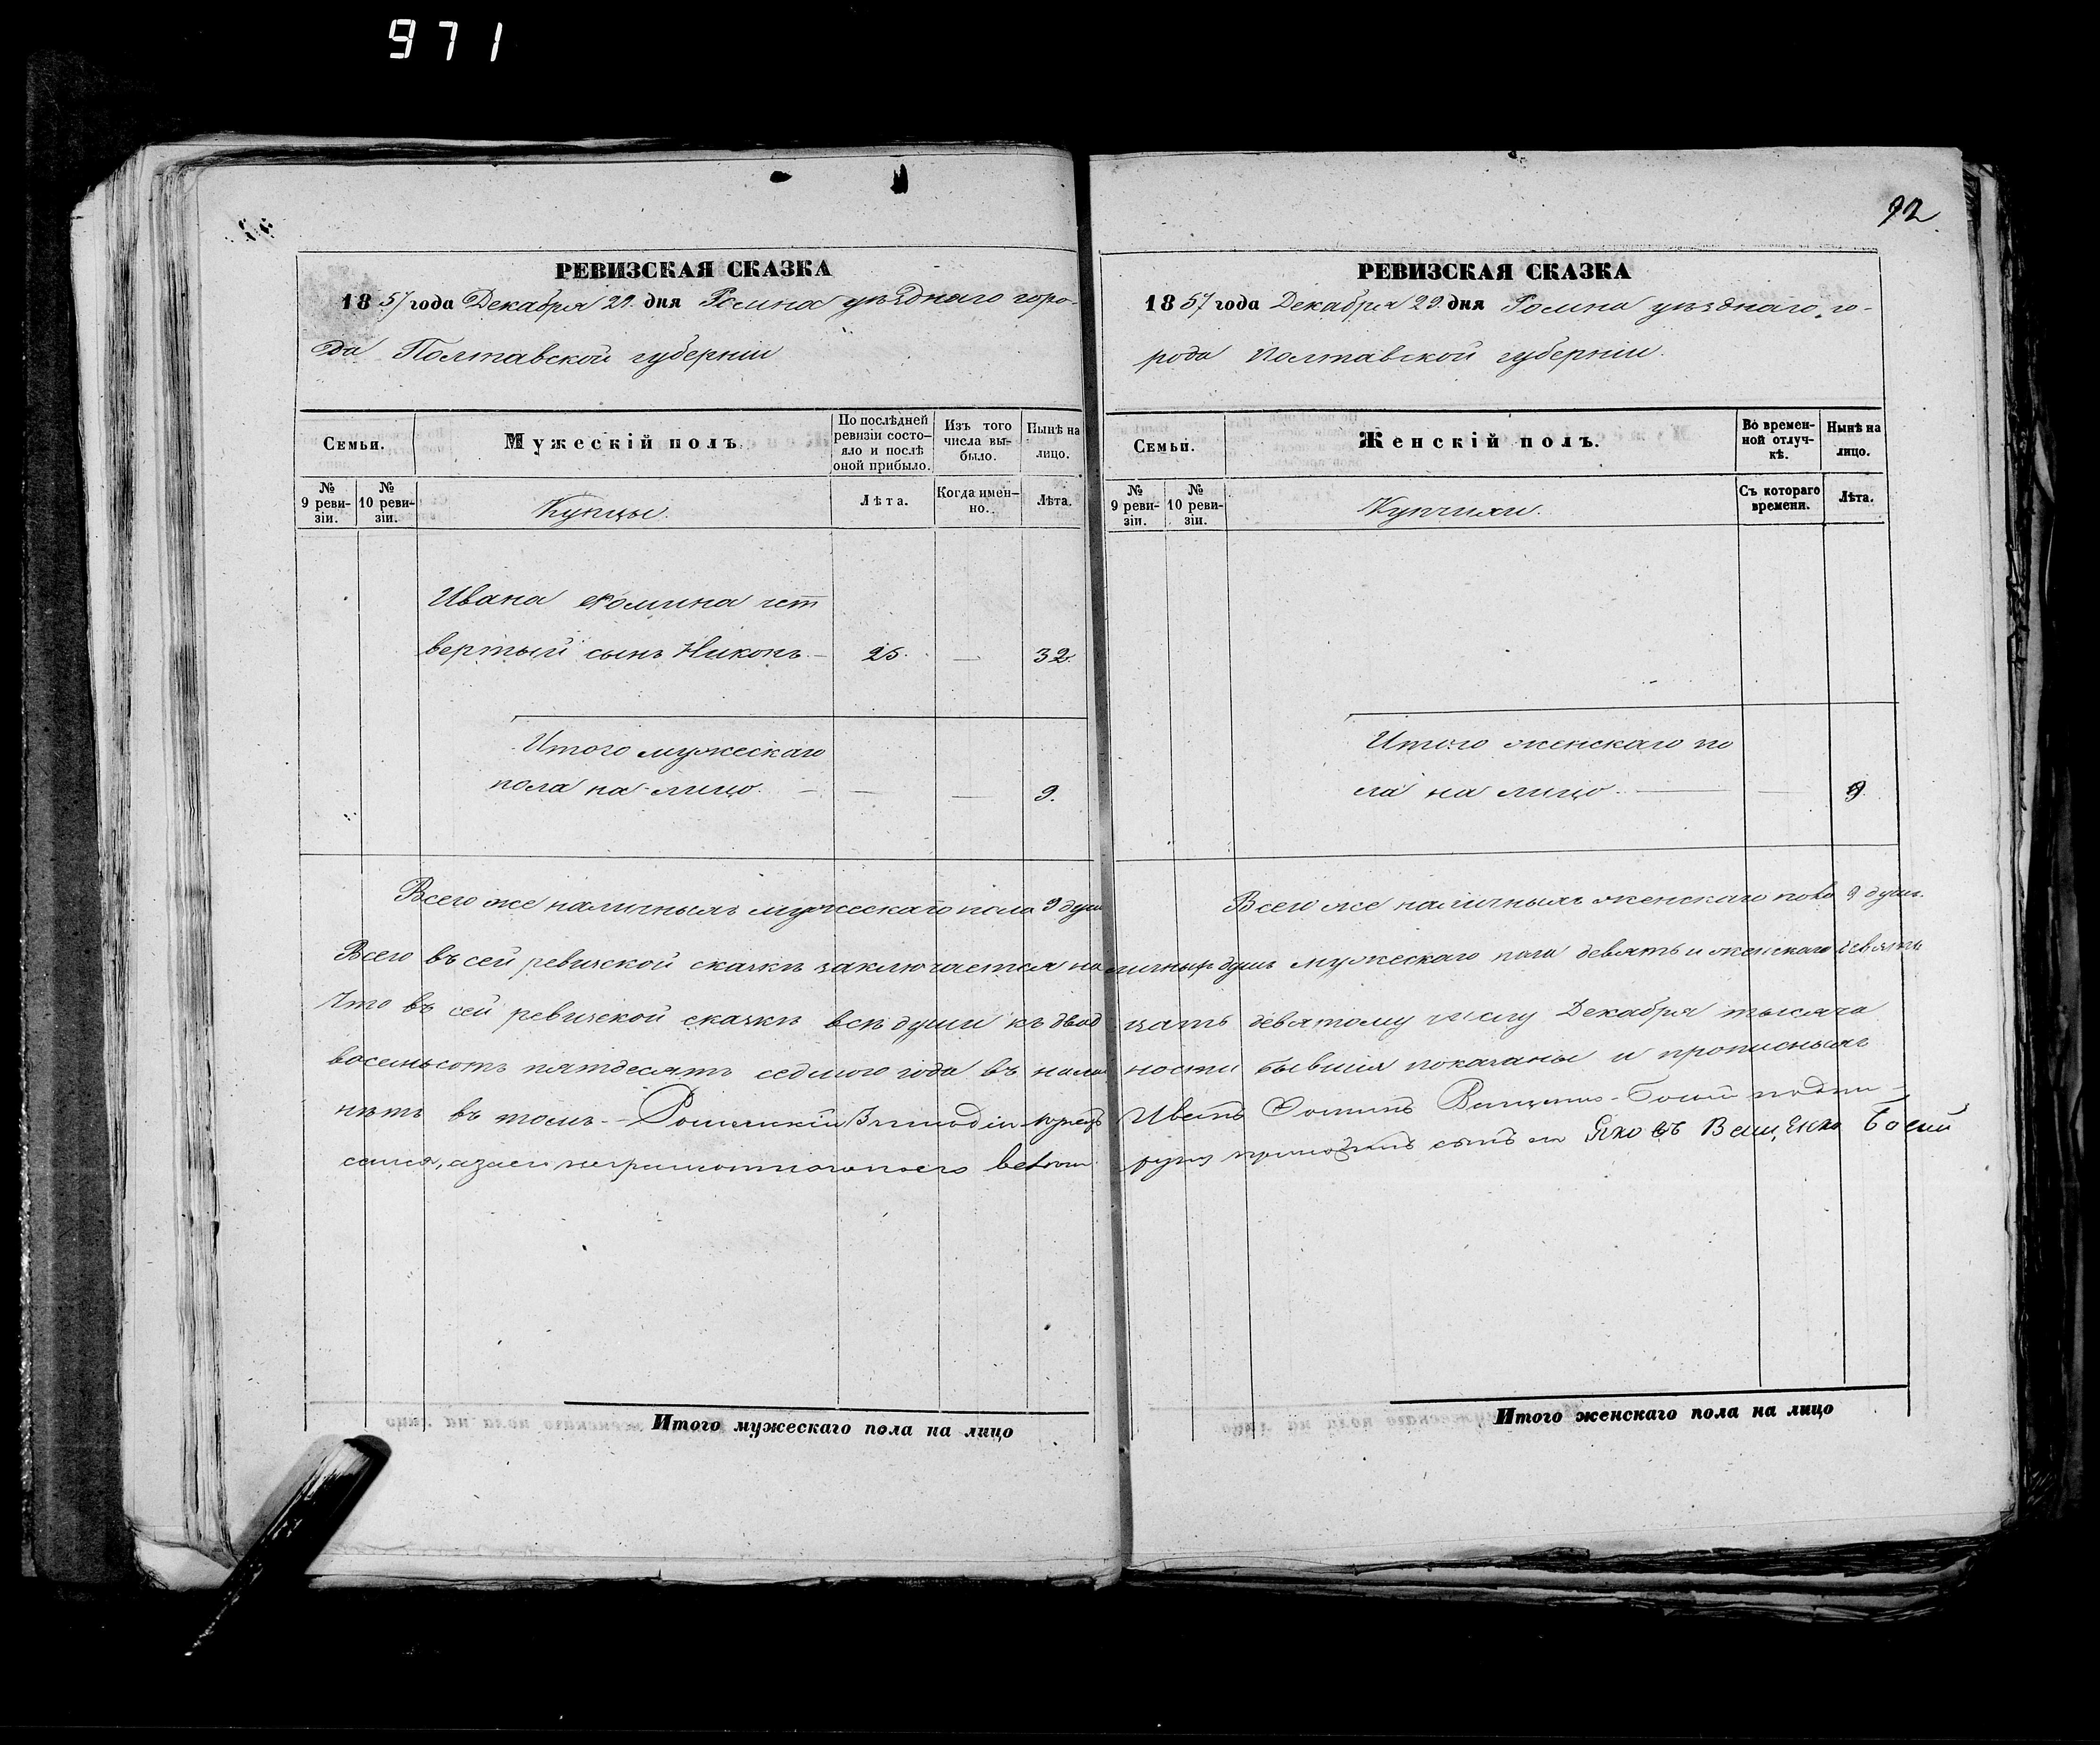 971
РЕВИЗСКАЯ СКАЗКА
1857 года Декабря 29. дня Ромна уѣзднаго горо-
да Полтавской губерніи
Семьи.
Мужескій полъ
По послѣдней ревизіи состо-яло и послѣ оной прибыло.
Изъ того числа вы-было.
Нынѣ на лицо.
№ 9 реви-зіи.
№ 10 реви-зіи.
Купцы.
Лѣта.
Когда имен-но.
Лѣта.
Ивана Фомина чет
вертый сынъ Никонъ — 25. — 32.
Итого мужескаго
пола на лицо. — — — 9.
92
РЕВИЗСКАЯ СКАЗКА
1857 года Декабря 29. дня Ромна уѣзднаго го-
рода Полтавской губерніи.
Семьи.
Женскій полъ.
Во времен-ной отлуч-кѣ.
Нынѣ на лицо.
№ 9 реви-зіи.
№ 10 реви-зіи.
Купчихи.
Съ котораго времени.
Лѣта.
Итого женскаго по
ла на лицо. — — 9.
Всего же наличныхъ мужескаго пола 9 душъ
Всего же наличныхъ женскаго пола 9 душъ.
Всего въ сей ревизской сказкѣ заключается наличныхъ душъ мужескаго пола девять и женскаго девять
Что въ сей ревизской сказкѣ всѣ души къ двадцать девятому числу Декабря тысяча
восемьсотъ пятдесятъ седмого года въ наличности бывшия показаны и прописныхъ
нѣтъ въ томъ — Роменскій 3 гилдіи купецъ Иванъ Фоминъ Ващенко-Босий подпи-
сался, а за его неграмотного сынъ его Яковъ Ващенко Босий
Итого мужескаго пола на лицо
Итого женскаго пола на лицо